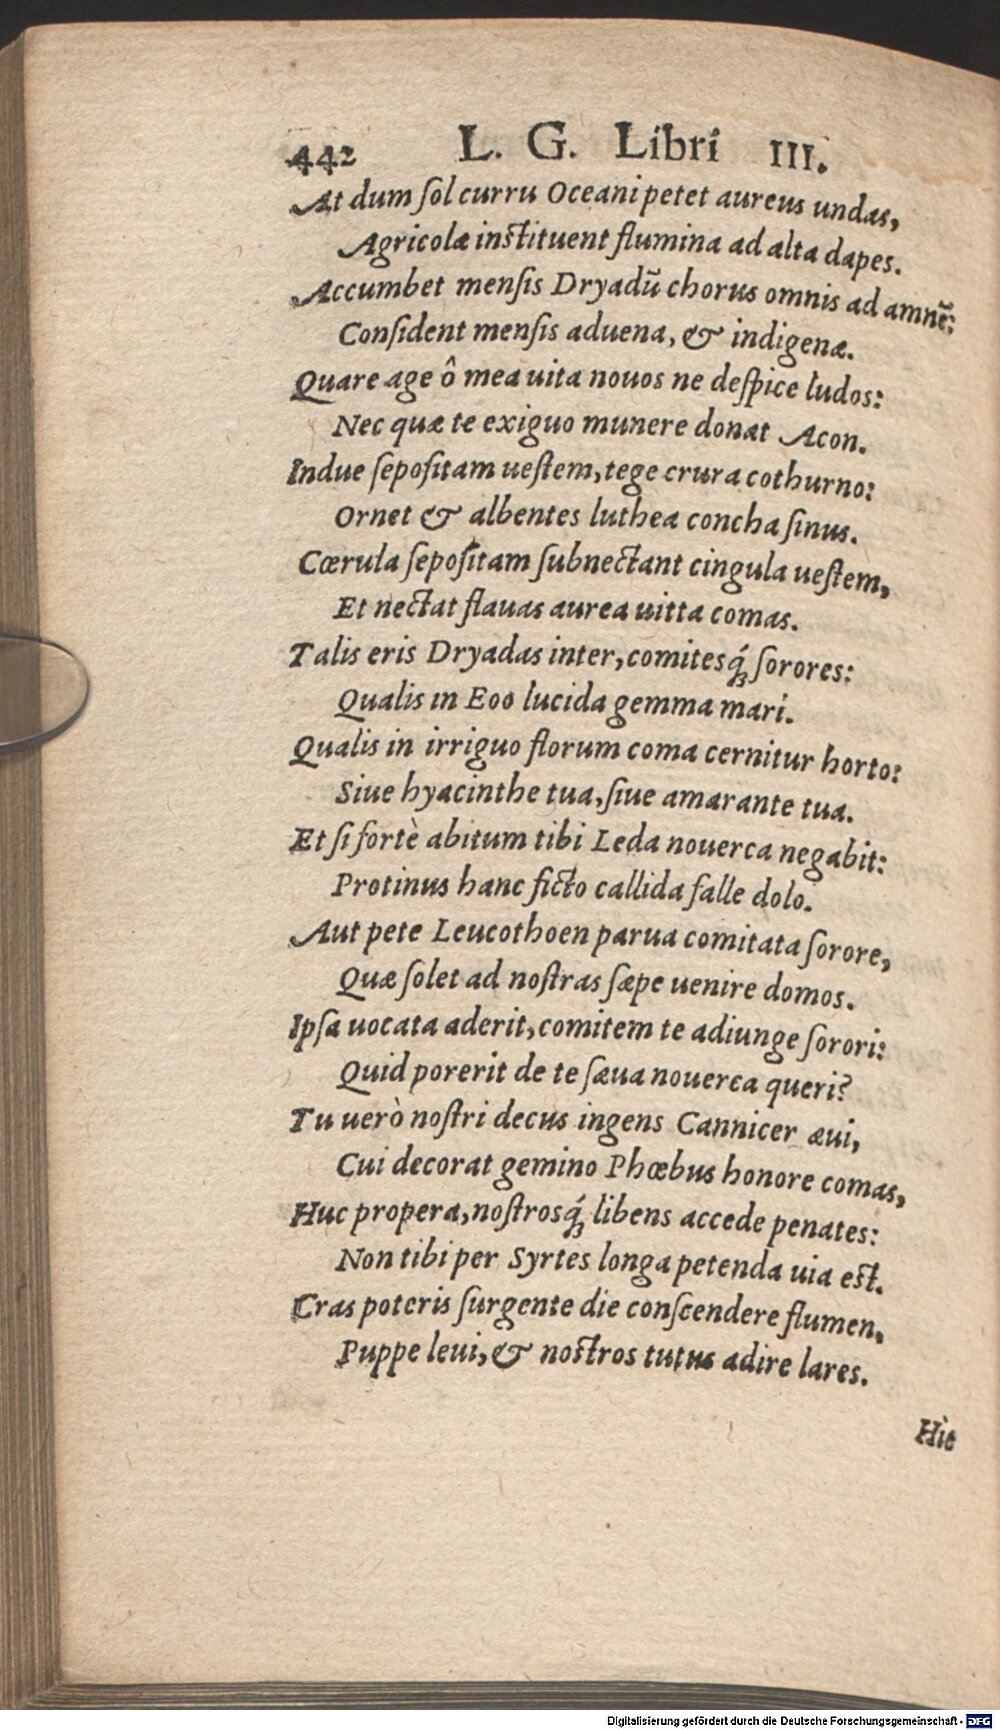 442 L. G. Libri III.
At dum ſol curru Oceani petet aureus undas,
Agricolæ inſtituent flumina ad alta dapes.
Accumbet menſis Dryadū chorus omnis ad amnē:
Conſident menſis aduena, & indigenæ.
Quare age ô mea uita nouos ne deſpice ludos:
Nec quæ te exiguo munere donat Acon.
Indue ſepoſitam ueſtem, tege crura cothurno:
Ornet & albentes luthea concha ſinus.
Cœrula ſepoſitam ſubnectant cingula ueſtem,
Et nectat flauas aurea uitta comas.
Talis eris Dryadas inter, comitesq́; ſorores:
Qualis in Eoo lucida gemma mari.
Qualis in irriguo florum coma cernitur horto:
Siue hyacinthe tua, ſiue amarante tua.
Et ſi fortè abitum tibi Leda nouerca negabit:
Protinus hanc ficto callida falle dolo.
Aut pete Leucothoen parua comitata ſorore,
Quæ ſolet ad noſtras ſæpe uenire domos.
Ipſa uocata aderit, comitem te adiunge ſorori:
Quid porerit de te ſæua nouerca queri?
Tu uerò noſtri decus ingens Cannicer æui,
Cui decorat gemino Phœbus honore comas,
Huc propera, noſtrosq́; libens accede penates:
Non tibi per Syrtes longa petenda uia eſt.
Cras poteris ſurgente die conſcendere flumen,
Puppe leui, & noſtros tutus adire lares.
Hìc
Digitalisierung gefördert durch die Deutsche Forschungsgemeinschaft - DFG